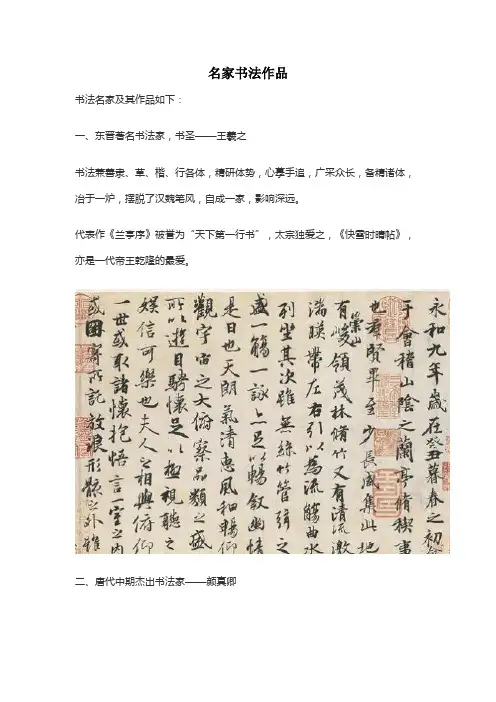 名家书法作品
书法名家及其作品如下：
一、东晋著名书法家，书圣——王羲之
书法兼善隶、草、楷、行各体，精研体势，心摹手追，广采众长，备精诸体，
冶于一炉，摆脱了汉魏笔风，自成一家，影响深远。
代表作《兰亭序》被誉为“天下第一行书”，太宗独爱之，《快雪时晴帖》，
亦是一代帝王乾隆的最爱。
永和九年歲在癸丑暮春之初
于會稽山陰之蘭亭脩稧事
也羣賢畢至少長咸集此地
有崇山峻領茂林脩竹又有清流激
湍暎帶左右引以為流觴曲水
列坐其次雖無絲竹管弦之
盛一觴一詠亦足以暢叙幽情
是日也天朗氣清惠風和暢仰
觀宇宙之大俯察品類之盛
所以遊目騁懷足以極視聽之
娛信可樂也夫人之相與俯仰
一世或取諸懷抱悟言一室之內
或因寄所託放浪形骸之外雖
二、唐代中期杰出书法家——颜真卿